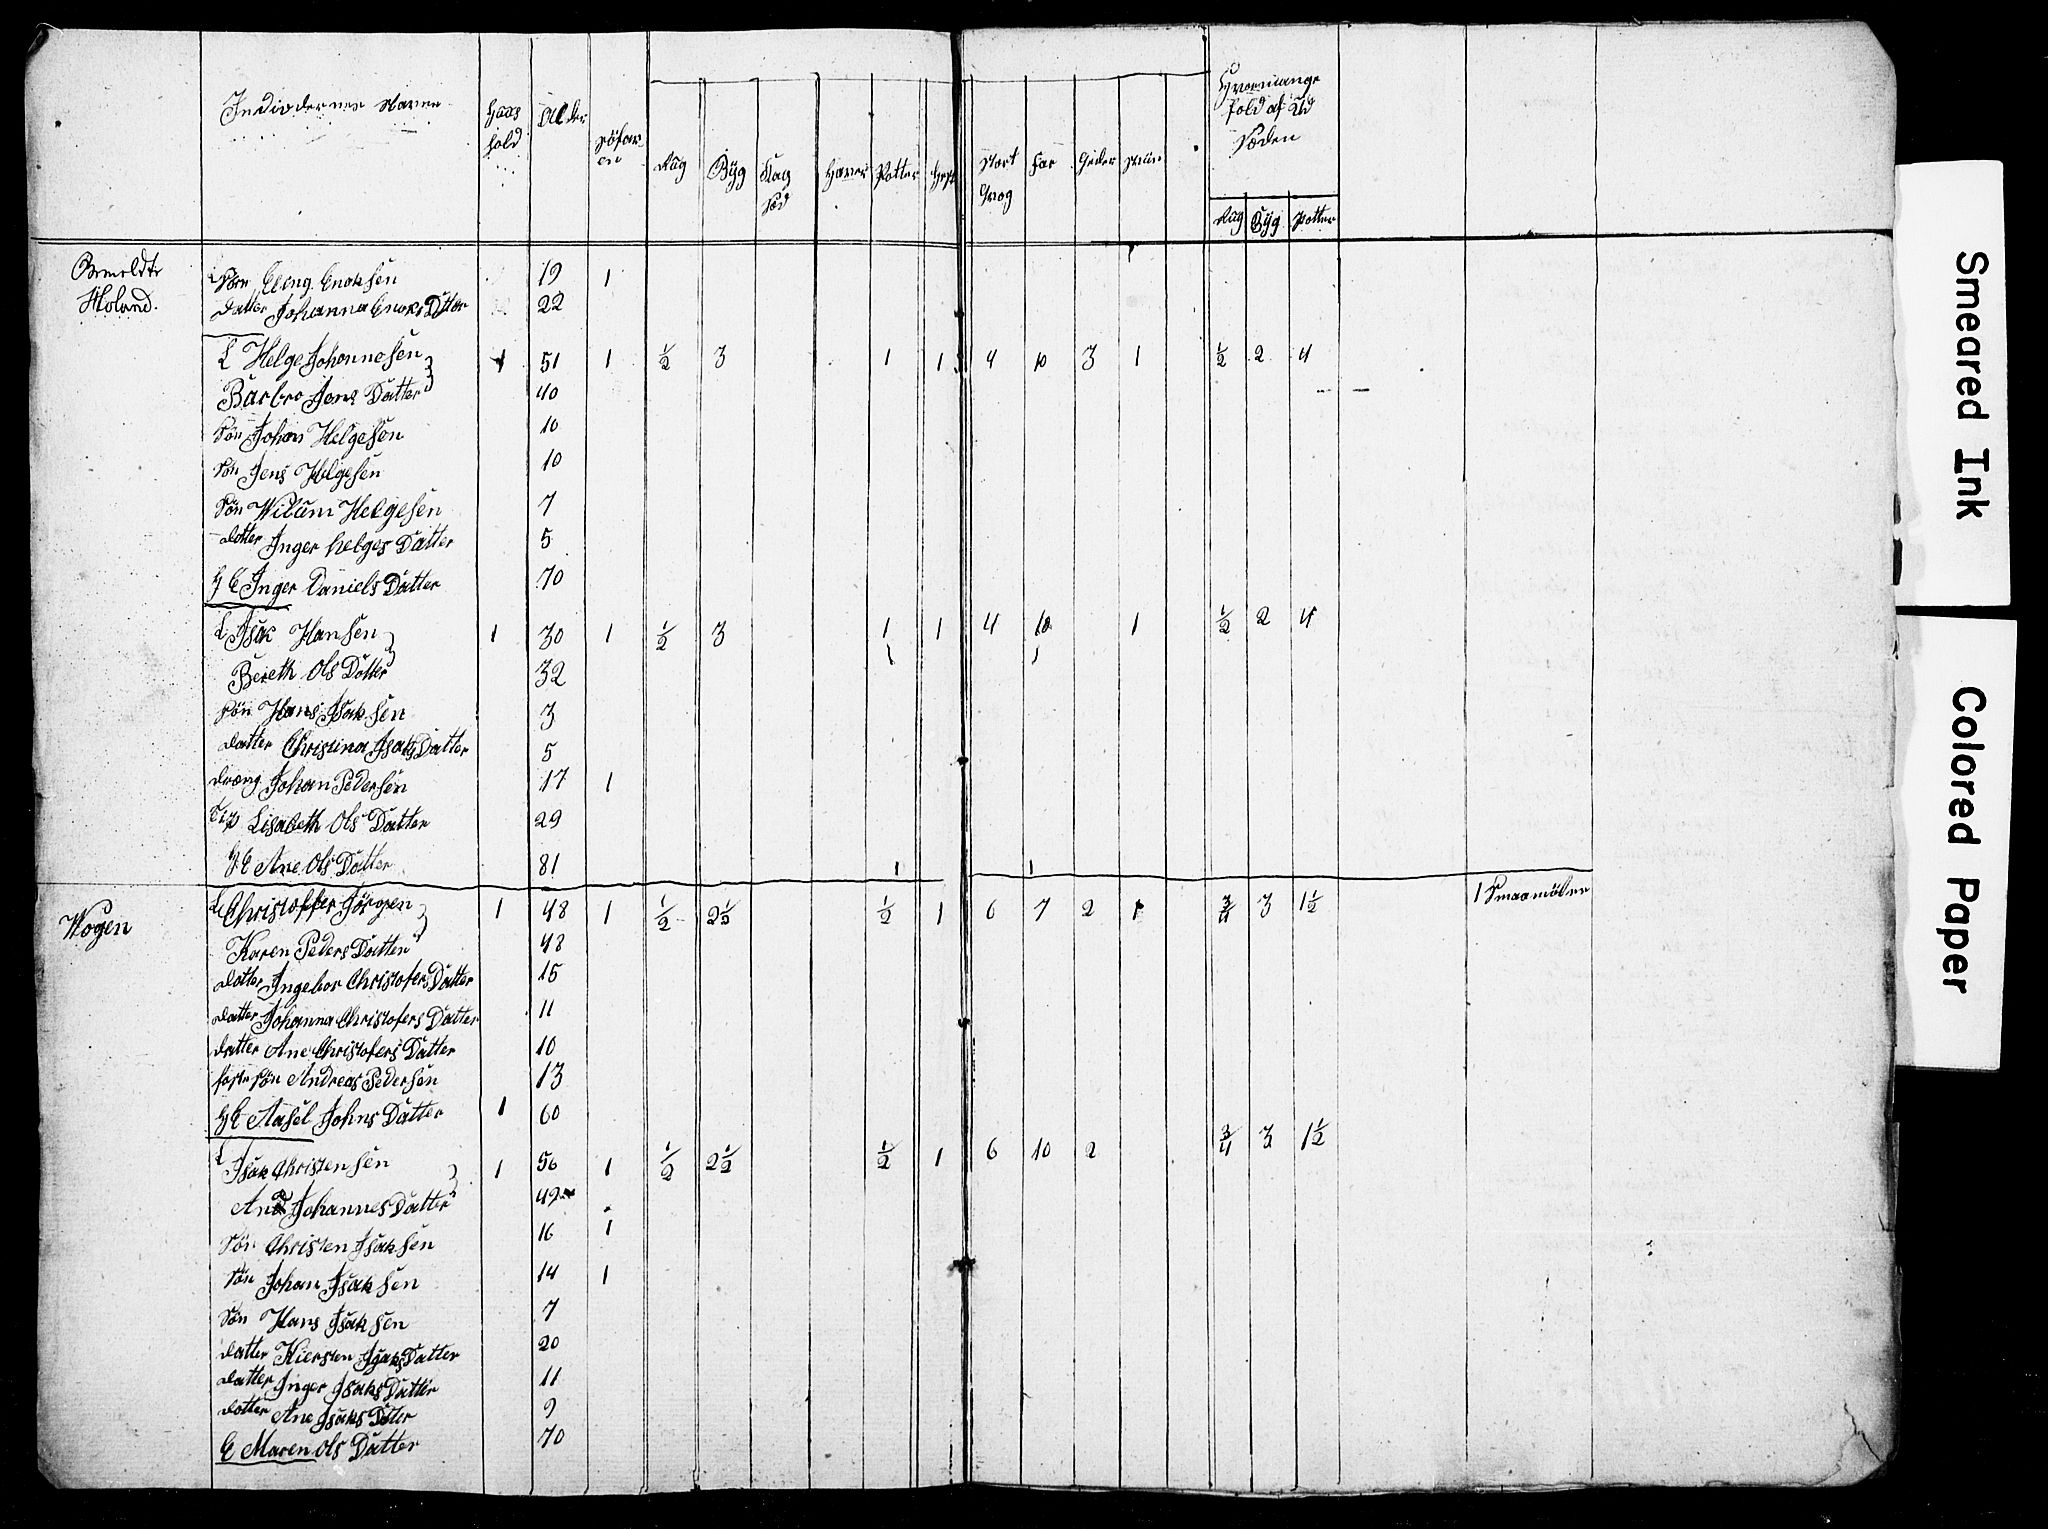 Individernes Navne
Huus hold
Alder
Søfar en
Rug
Byg
Havre
Potter
Hest
Stort Qvæg
Faar
Geder
Sviin
Hvormange fold af Ud Sæden
Rug Byg Potter
Bemeldte Moland.
Søn Eleng Enoksen 19 1
Datter Johanna Enoks Datter 22
L Helge Johannesen 1 51 1 1/2 3 1 1 4 10 3 1 1/2 2 4
Barbro Jens Datter 40
Søn Johan Helgesen 10
Søn Jens Helgesen 10
Søn Wilum Helgesen 7
datter Inger helges Datter 5
H E Inger Daniels Datter 70
L Isak Hansen 1 30 1 1/2 3 1 1 4 10 1 1/2 2 4
Bereth Ols Datter 32
Søn Hans Isaksen 3
datter Christina Isaks Datter 5
dreng Johan Pedersen 17 1
Lisabeth Ols Datter 29
H E Ane Ols Datter 81 1 1
Wogen
L Christoffer Jörgen 1 48 1 1/2 2 1/2 1/2 1 6 7 2 1 3/4 3 1 1/2 1 Smaamölne
Karen Peders Datter 48
datter Ingebor Christofers Datter 15
datter Johanna Christofers Datter 11
datter Ane Christofers Datter 10
foster søn Andreas Pedersen 13
H E Aasel Johns Datter 1 60
L Isak Christensen 1 56 1 1/2 2 1/2 1/2 1 6 10 2 3/4 3 1 1/2
Ane Johannes Datter 49
Søn Christen Isaksen 16 1
Søn Johan Isaksen 14 1
Søn Hans Isaksen 7
datter Kiersten Isaks Datter 20
datter Inger Isaks Datter 11
datter Ane Isaks Datter 9
E Maren Ols Datter 70
Smeared Ink
Colored Paper